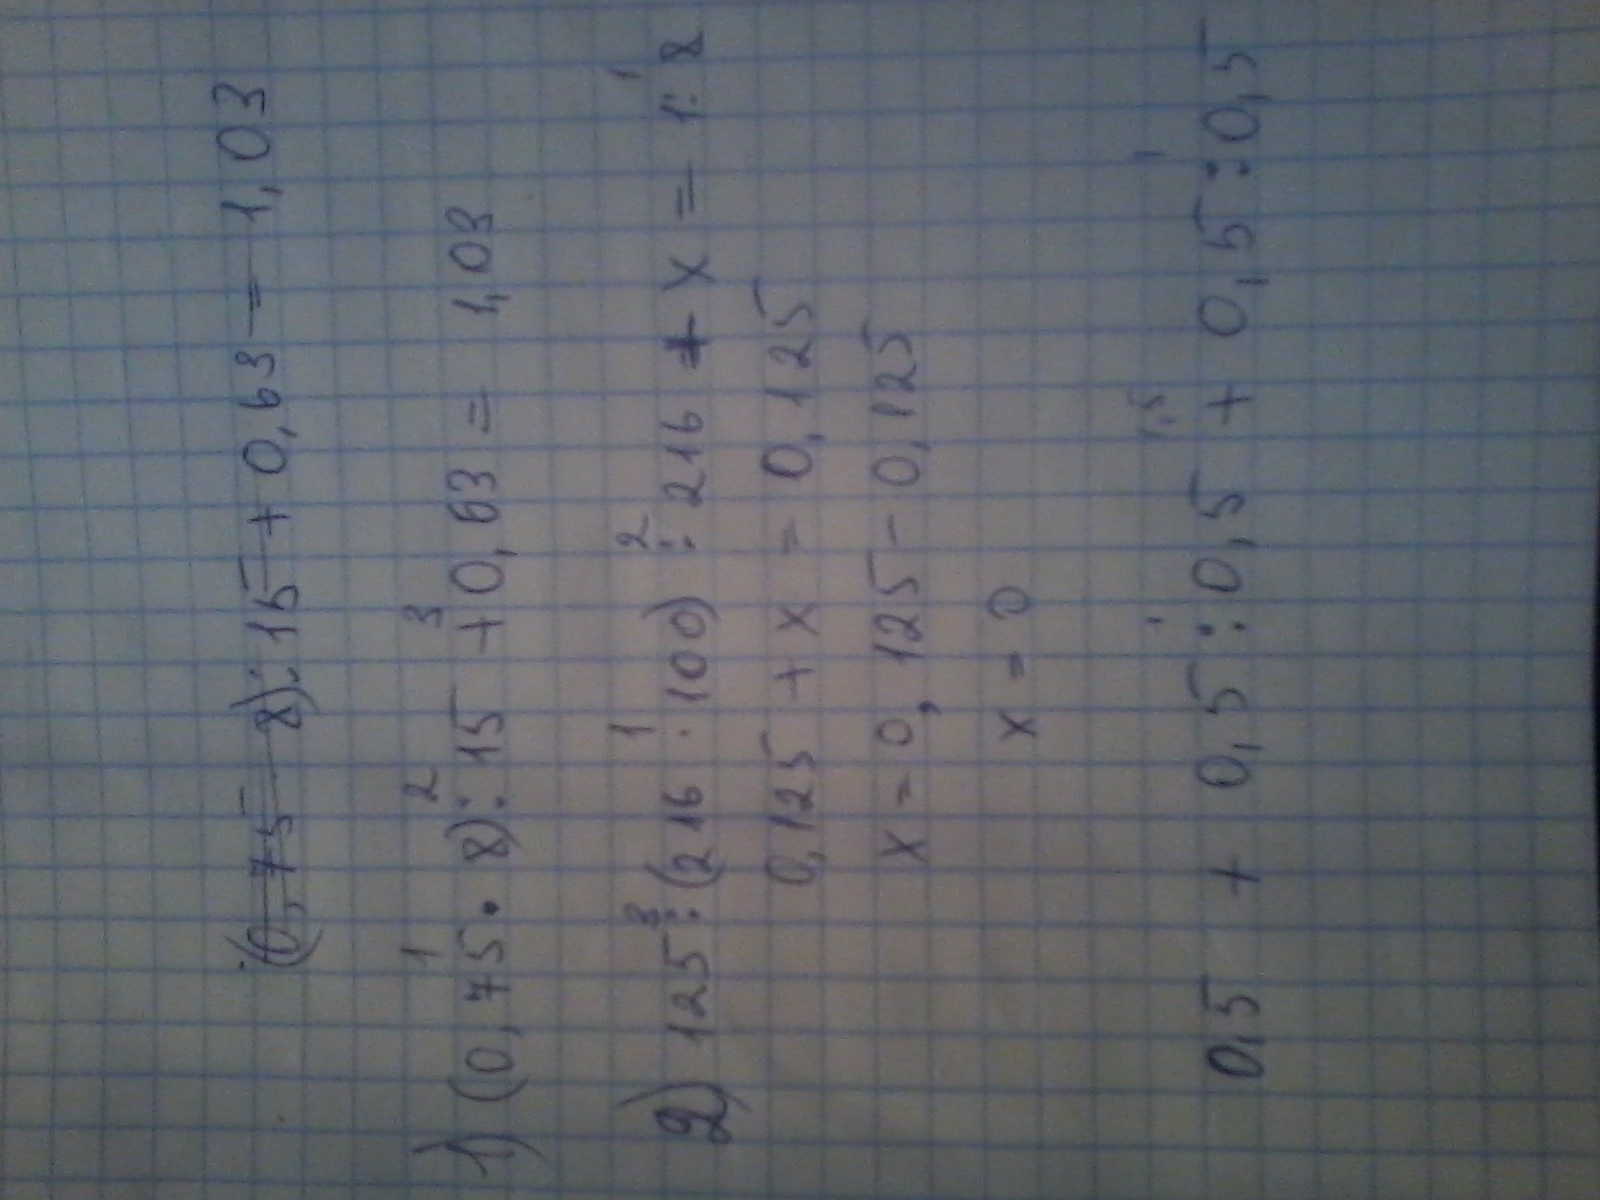 (0,75 8):15+0,63=1,03
1) (0,75 · 8):15 +0,63 = 1,03
1 2 3
2) 125:(216 · 100):216 + x = 1:8
3 1 2 1
0,125 + x = 0,125
x = 0,125 - 0,125
x = 0
1 1,5 1
0,5 + 0,5:0,5 + 0,5:0,5